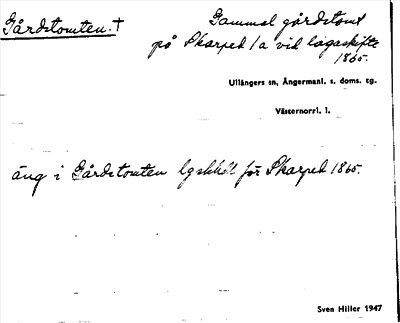 Gårdstomten. †
Gammal gårdstomt
på Skarped 1a vid lagaskifte
1865.
Ullångers sn, Ångermanl. s. doms. tg.
Västernorrl. l.
äng i Gårdstomten för Skarped 1865.
Sven Hiller 1947